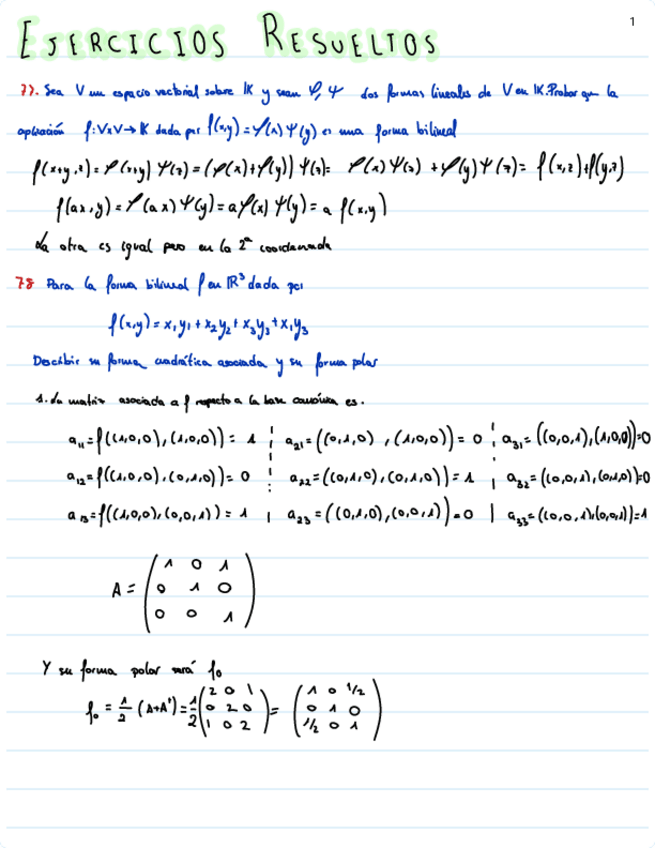 1
EJERCICIOS RESUELTOS
77. Sea V un espacio vectorial sobre IK y sean φ, ψ dos formas lineales de V en IK. Probar que la
aplicación f: V×V → K dada por f(x,y) = φ(x) ψ(y) es una forma bilineal
f(x+y,z) = φ(x+y) ψ(z) = (φ(x)+φ(y)) ψ(z) = φ(x) ψ(z) + φ(y) ψ(z) = f(x,z) + f(y,z)
f(ax,y) = φ(ax) ψ(y) = a φ(x) ψ(y) = a f(x,y)
La otra es igual pero en la 2ª coordenada
78 Para la forma bilineal f en IR³ dada por
f(x,y) = x₁y₁ + x₂y₂ + x₃y₃ + x₁y₃
Describir su forma cuadrática asociada y su forma polar
1. La matriz asociada a f respecto a la base canónica es.
a₁₁ = f((1,0,0), (1,0,0)) = 1 ¦ a₂₁ = ((0,1,0), (1,0,0)) = 0 ¦ a₃₁ = ((0,0,1), (1,0,0)) = 0
a₁₂ = f((1,0,0), (0,1,0)) = 0 ¦ a₂₂ = ((0,1,0), (0,1,0)) = 1 | a₃₂ = ((0,0,1), (0,1,0)) = 0
a₁₃ = f((1,0,0), (0,0,1)) = 1 | a₂₃ = ((0,1,0), (0,0,1)) = 0 | a₃₃ = ((0,0,1), (0,0,1)) = 1
1 0 1
A = 0 1 0
0 0 1
Y su forma polar será f₀
2 0 1 1 0 1/2
f₀ = 1/2 (A+Aᵗ) = 1/2 0 2 0 = 0 1 0
1 0 2 1/2 0 1